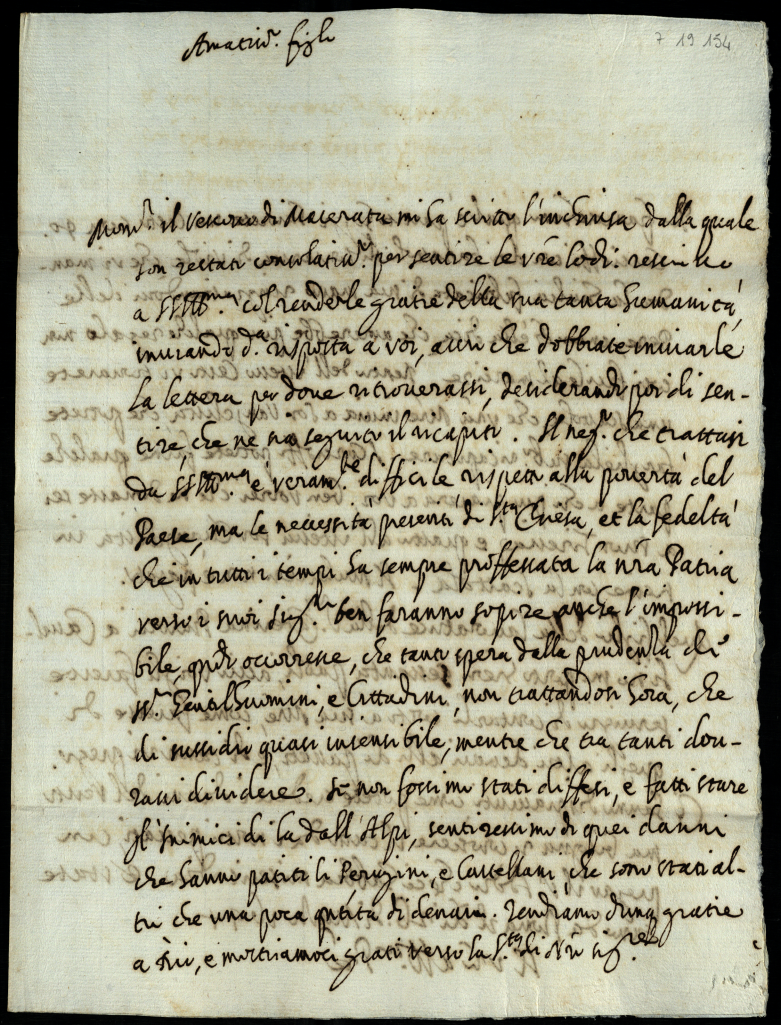 Amatiss.r figli
7 19 154
Mons.r il Vescovo di Macerata mi hà scritto l'inchiusa dalla quale
son restati consolatiss.r per sentire le vr̃e lodi.
a SS. Ill.ma col renderle gratie della sua tanta humanità,
inviando d.a risposta a voi, acciò che dobbiate inviarle
la lettera per dove ritroverassi, desiderando poi di sen-
tire, che ne sia seguito il ricapito. Il neg.o che trattasi
da SS. Ill.ma è veram.te difficile rispetto alla povertà del
Paese, ma le necessità presenti di S.ta Chiesa, et la fedeltà
che in tutti i tempi ha sempre proffessata la nr̃a Patria
verso i suoi sig.ri ben faranno sopire anche l'impossi-
bile, qn̄do occorresse, che tanto spera dalla prudenza di
SS.ri Gentilhuomini, e Cittadini, non trattandosi hora, che
di sussidio quasi insensibile, mentre che tra tanti dov-
rassi dividere. Se non fossimo stati diffesi, e fatti stare
gl'inimici di la dall'Alpi, sentiressimo di quei danni
che hanno patiti li Perugini, e Castellani, che sono stati al-
tro che una poca qn̄tità di denari. rendiamo dunq. gratie
a Dio, e mostriamoci grati verso la S.tà di Nr̃o Sig.re